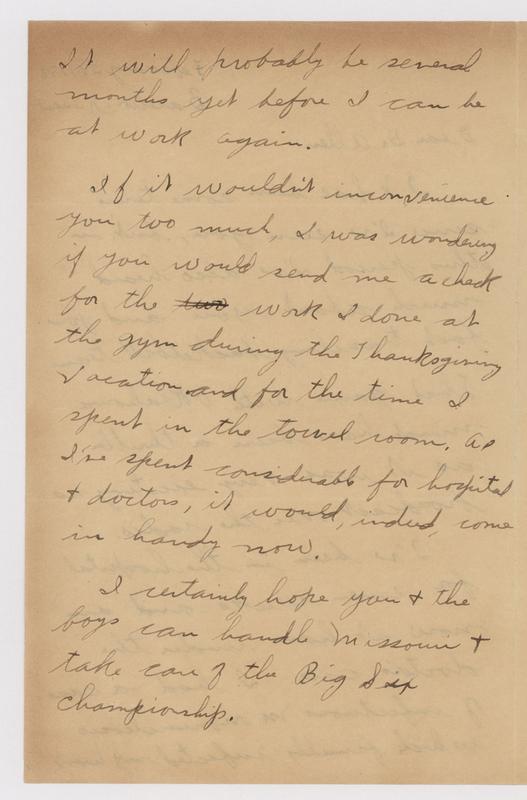 It will probably be several
months yet before I can be
at work again.
If it wouldn't inconvenience
you too much, I was wondering
if you would send me a check
for the work I done at
the gym during the Thanksgiving
vacation and for the time I
spent in the towel room. As
I've spent considerable for hospital
+ doctors, it would, indeed, come
in handy now.
I certainly hope you + the
boys can handle Missouri +
take care of the Big Six
championship.